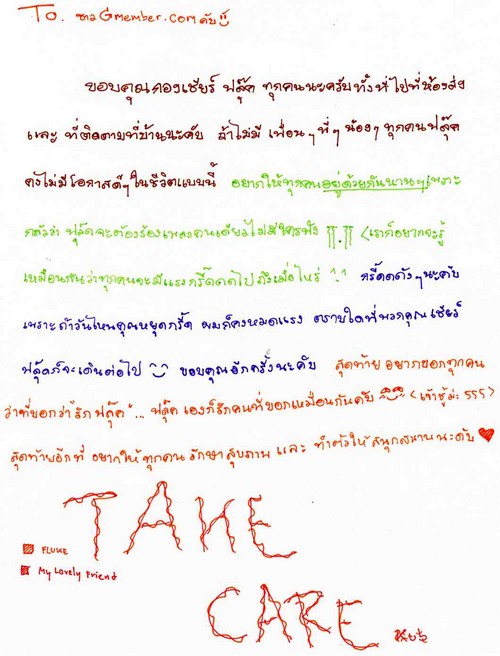 To. ชาว Gmember.com คับ
ขอบคุณกองเชียร์ ฟลุ๊ค ทุกคนนะครับทั้งที่ไปที่ห้องส่ง
และ ที่ติดตามที่บ้านนะคับ ถ้าไม่มี เพื่อนๆ พี่ๆ น้องๆ ทุกคนฟลุ๊ค
คงไม่มีโอกาสดีๆ ในชีวิตแบบนี้ อยากให้ทุกคนอยู่ด้วยกันนานๆ เพราะ
กลัวว่า ฟลุ๊คจะต้องร้องเพลงคนเดียวไม่มีใครฟัง T_T (เราก็อยากจะรู้
เหมือนกันว่าทุกคนจะมีแรงกรี๊ดกดไปถึงเมื่อไหร่ ^^ กรี๊ดดดังๆ นะคับ
เพราะถ้าวันไหนคุณหยุดกรี๊ด ผมก็คงหมดแรง ตราบใดที่พวกคุณเชียร์
ฟลุ๊คก็จะเดินต่อไป ขอบคุณอีกครั้งนะคับ สุดท้าย อยากบอกทุกคน
ว่าที่บอกว่า "รักฟลุ๊ค"... ฟลุ๊ค เองก็รักคนที่บอกเหมือนกันคับ (เจ้าชู้มะ 555)
สุดท้ายอีกที อยากให้ทุกคน รักษาสุขภาพ และ ทำตัวให้สนุกสนานนะคับ ♥
TAKE
FLUKE
My Lovely Friend
CARE